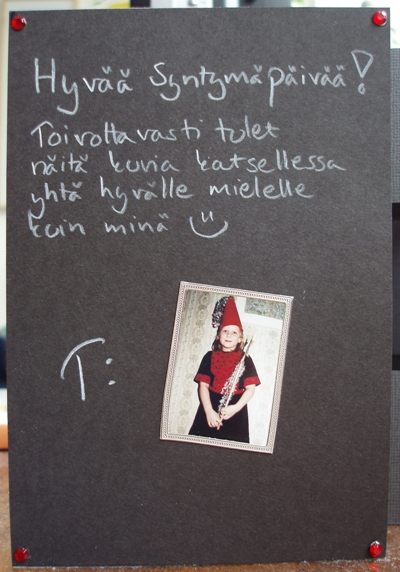 Hyvää Syntymäpäivää!
Toivottavasti tulet
näitä kuvia katsellessa
yhtä hyvälle mielelle
kuin minä Ü
T: